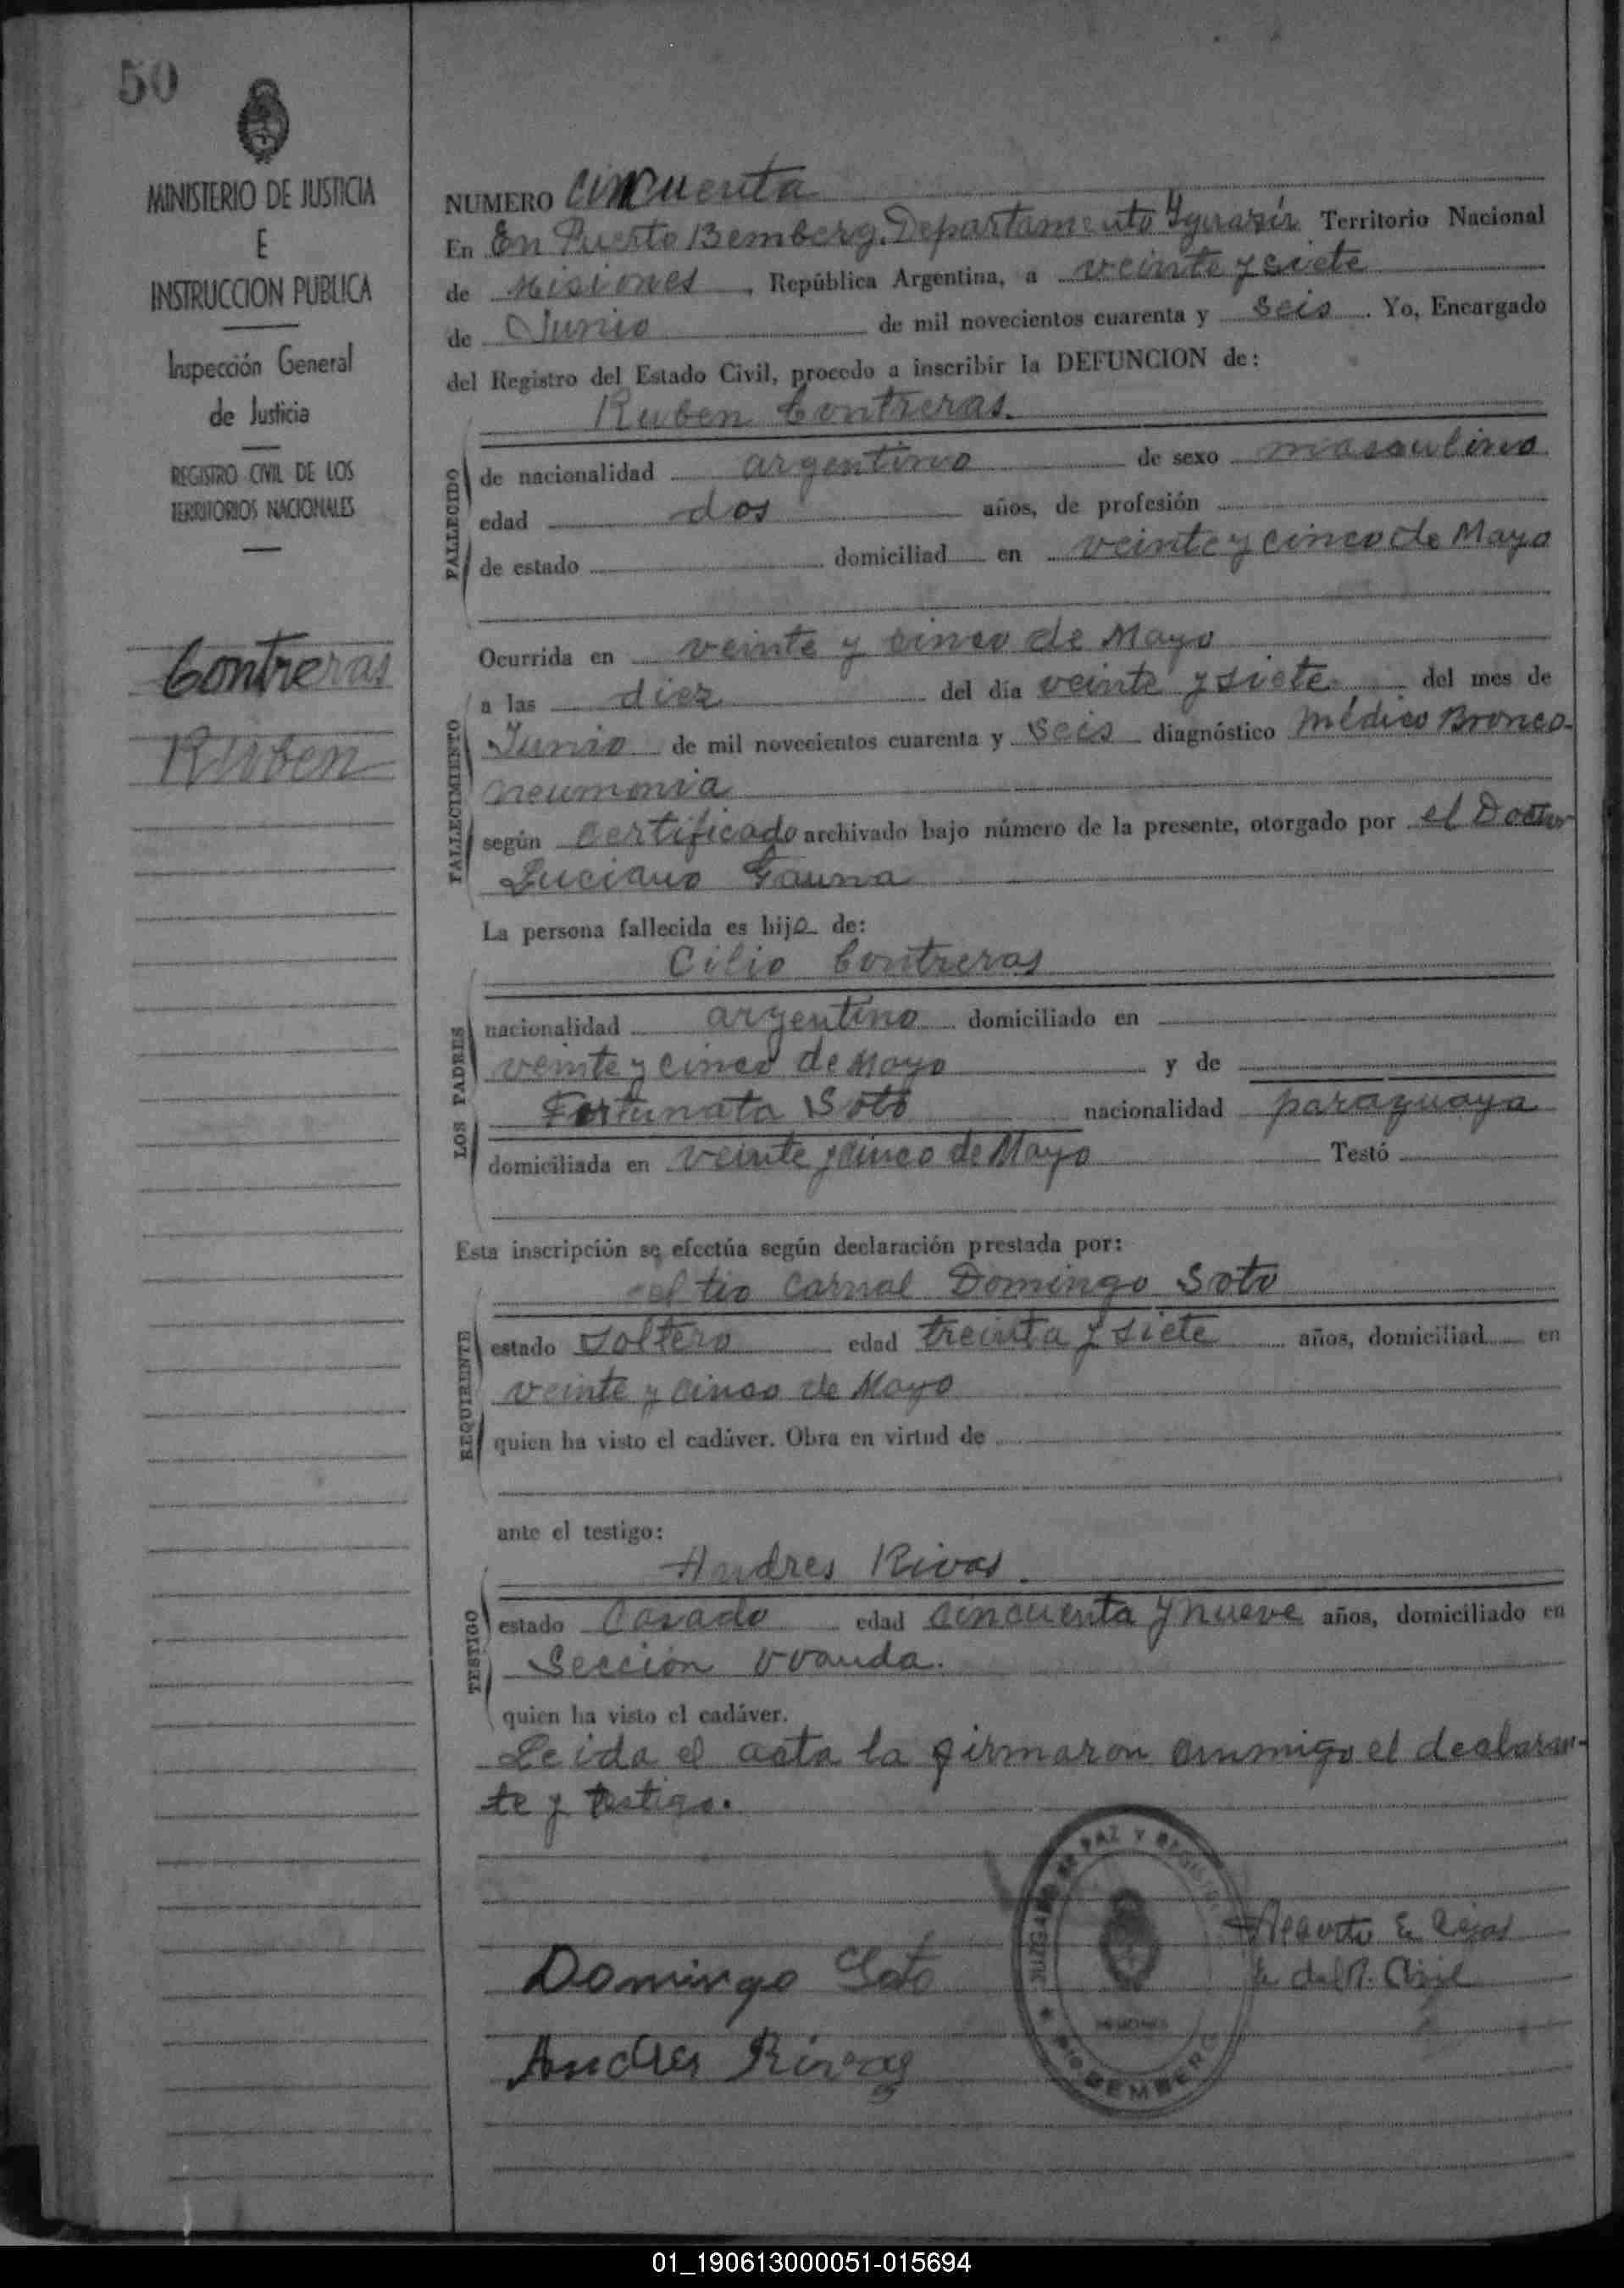 50
MINISTERIO DE JUSTICIA
E
INSTRUCCION PUBLICA
Inspección General
de Justicia
REGISTRO CIVIL DE LOS
TERRITORIOS NACIONALES
Contreras
Ruben
NUMERO cincuenta
En En Puerto Bemberg, Departamento Yguazú Territorio Nacional
de Misiones, República Argentina, a veinte y siete
de Junio de mil novecientos cuarenta y seis. Yo, Encargado
del Registro del Estado Civil, procedo a inscribir la DEFUNCION de:
Ruben Contreras.
FALLECIDO
de nacionalidad argentino de sexo masculino
edad dos años, de profesión
de estado domiciliad en veinte y cinco de Mayo
Ocurrida en veinte y cinco de Mayo
FALLECIMIENTO
a las diez del día veinte y siete del mes de
Junio de mil novecientos cuarenta y seis diagnóstico médico Bronco-
neumonia
según certificado archivado bajo número de la presente, otorgado por el Doctor
Luciano Gauna
La persona fallecida es hijo de:
Cilio Contreras
LOS PADRES
nacionalidad argentino domiciliado en
veinte y cinco de Mayo y de
Fortunata Soto nacionalidad paraguaya
domiciliada en veinte y cinco de Mayo Testó
Esta inscripción se efectúa según declaración prestada por:
el tio carnal Domingo Soto
REQUIRENTE
estado soltero edad treinta y siete años, domiciliad en
veinte y cinco de Mayo
quien ha visto el cadáver. Obra en virtud de
ante el testigo:
Andres Rivas.
TESTIGO
estado Casado edad cincuenta y nueve años, domiciliado en
Sección Wanda.
quien ha visto el cadáver.
Leida el acta la firmaron conmigo el declaran-
te y testigo.
JUZGADO DE PAZ Y REGISTRO
MISIONES
BEMBERG
E. del R. Civil
Domingo Soto
Andres Rivas
01_190613000051-015694